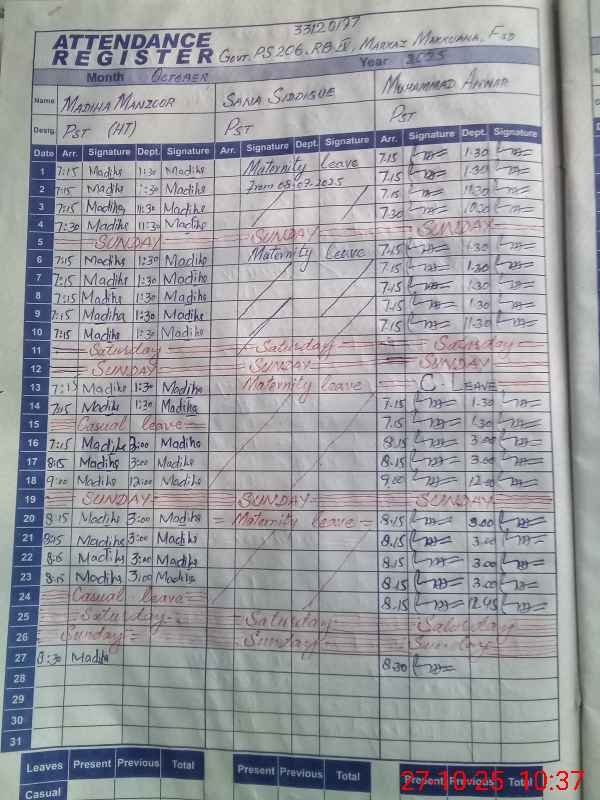 33120177
ATTENDANCE
REGISTER Govt. PS 206. RB. II, MARKAZ MAKKUANA, FSD
Month OCTOBER Year 2025
Name MADIHA MANZOOR SANA SIDDIQUE MUHAMMAD ANWAR
Desig. PST (HT) PST PST
Date Arr. Signature Dept. Signature Arr. Signature Dept. Signature Arr. Signature Dept. Signature
1 7:15 Madiha 1:30 Madiha Maternity leave 7.15 1.30
2 7:15 Madiha 1:30 Madiha From 08-07-2025 7.15 1.30
3 7:15 Madiha 11:30 Madiha 7.15
4 7:30 Madiha 11:30 Madiha 7.30
5 SUNDAY SUNDAY SUNDAY
6 7:15 Madiha 1:30 Madiha Maternity Leave 7.15 1.30
7 7:15 Madiha 1:30 Madiha 7.15 1.30
8 7:15 Madiha 1:30 Madiha 7.15 1.30
9 7:15 Madiha 1:30 Madiha 7.15 1.30
10 7:15 Madiha 1:30 Madiha 7.15 11.30
11 Saturday Saturday Saturday
12 SUNDAY SUNDAY SUNDAY
13 7:15 Madiha 1:30 Madiha Maternity leave C. LEAVE
14 7:15 Madiha 1:30 Madiha 7.15 1.30
15 Casual leave 7.15 1.30
16 7:15 Madiha 3:00 Madiha 8.15 3.00
17 8:15 Madiha 3:00 Madiha 8.15 3.00
18 9:00 Madiha 12:00 Madiha 9.00 12.00
19 SUNDAY SUNDAY SUNDAY
20 8:15 Madiha 3:00 Madiha = Maternity leave = 8.15 3.00
21 8:15 Madiha 3:00 Madiha 8.15 3.00
22 Madiha 3:00 Madiha 8.15 3.00
23 8:15 Madiha 3:00 Madiha 8.15 3.00
24 Casual leave 8.15 12.45
25 Saturday Saturday Saturday
26 Sunday Sunday Sunday
27 8:30 Madiha 8.30
28
29
30
31
Leaves Present Previous Total Present Previous Total Present Previous Total
Casual
27-10-25 10:37